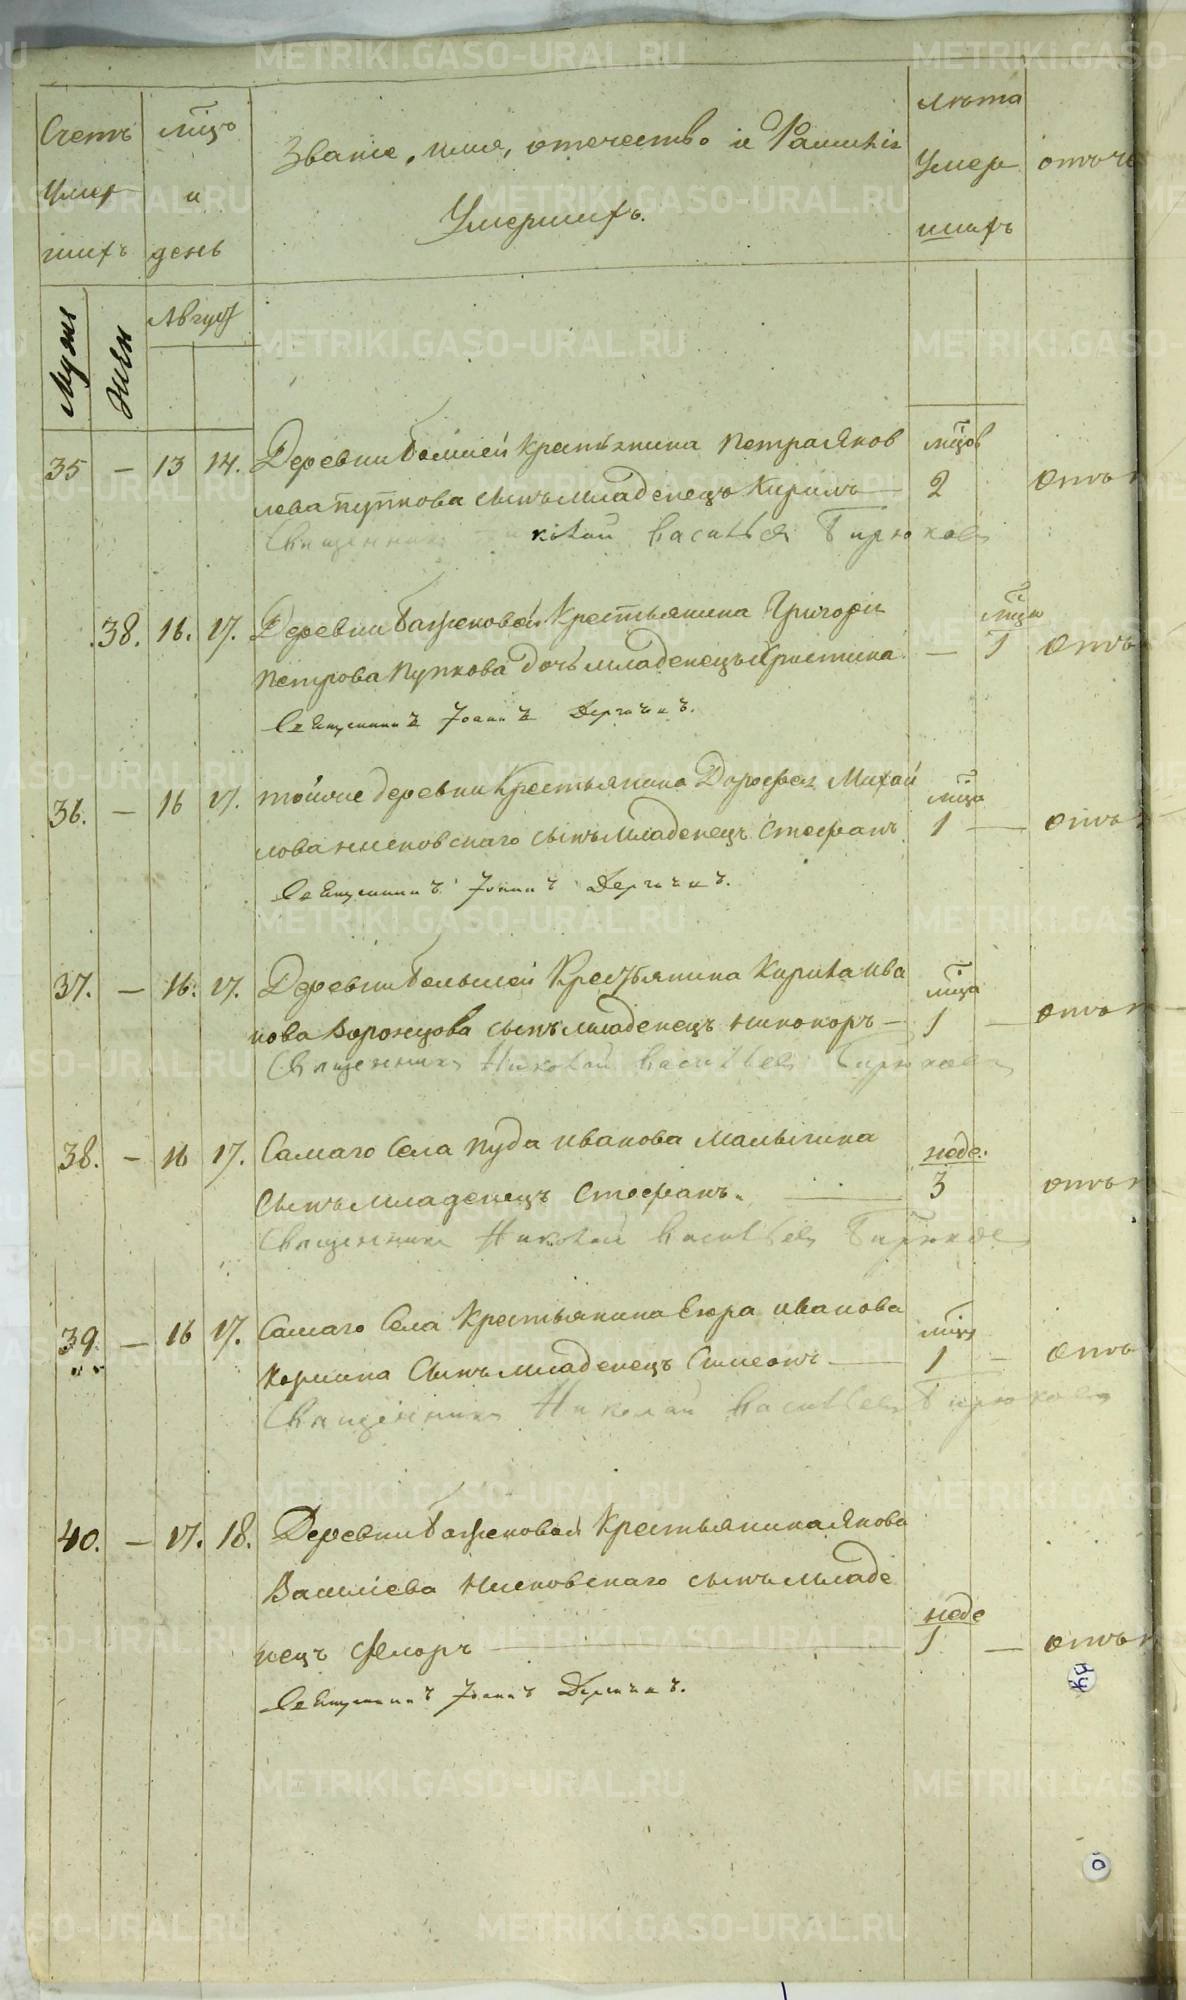 Счетъ
Умер
шихъ
мцъ
и
день
Званіе, имя, отечество и Фамиліи
Умершихъ.
лѣта
Умер
шихъ
отъ че
Муж
Жен
Август
35 — 13 14. Деревни Большей Крестьянина Петра Яков
лева Пупкова сынъ младенецъ Кирилъ —
мцов
2
отъ
Священникъ Николай Васильев Бирюков
38. 16. 17. Деревни Баженовой Крестьянина Григорiя
Петрова Пупкова дочь младенецъ Христина —
мцъ
1
отъ
Священникъ Іоаннъ Дергачевъ.
36. — 16 17. той же деревни Крестьянина Дорофея Михай
лова сынъ младенецъ Стефанъ
мца
1 —
отъ
Священникъ Іоаннъ Дергачевъ.
37. — 16. 17. Деревни Большей Крестьянина Кирила Ива
нова Воронцова сынъ младенецъ Никоноръ —
мца
1 —
отъ
Священникъ Николай Васильев Бирюков
38. — 16 17. Самаго Села Пуда Иванова Малыгина
сынъ младенецъ Стефанъ. —
неде.
3
отъ
Священникъ Николай Васильев Бирюков
39. — 16 17. Самаго Села Крестьянина Егора Иванова
Сынъ младенецъ Симеонъ —
мцъ
1 —
отъ
Священникъ Николай Васильев Бирюков
40. — 17. 18. Деревни Баженовой Крестьянина Якова
Василіева сынъ младе
нецъ Флоръ —
неде
1 —
отъ
Священникъ Іоаннъ Дергачевъ.
METRIKI.GASO-URAL.RU